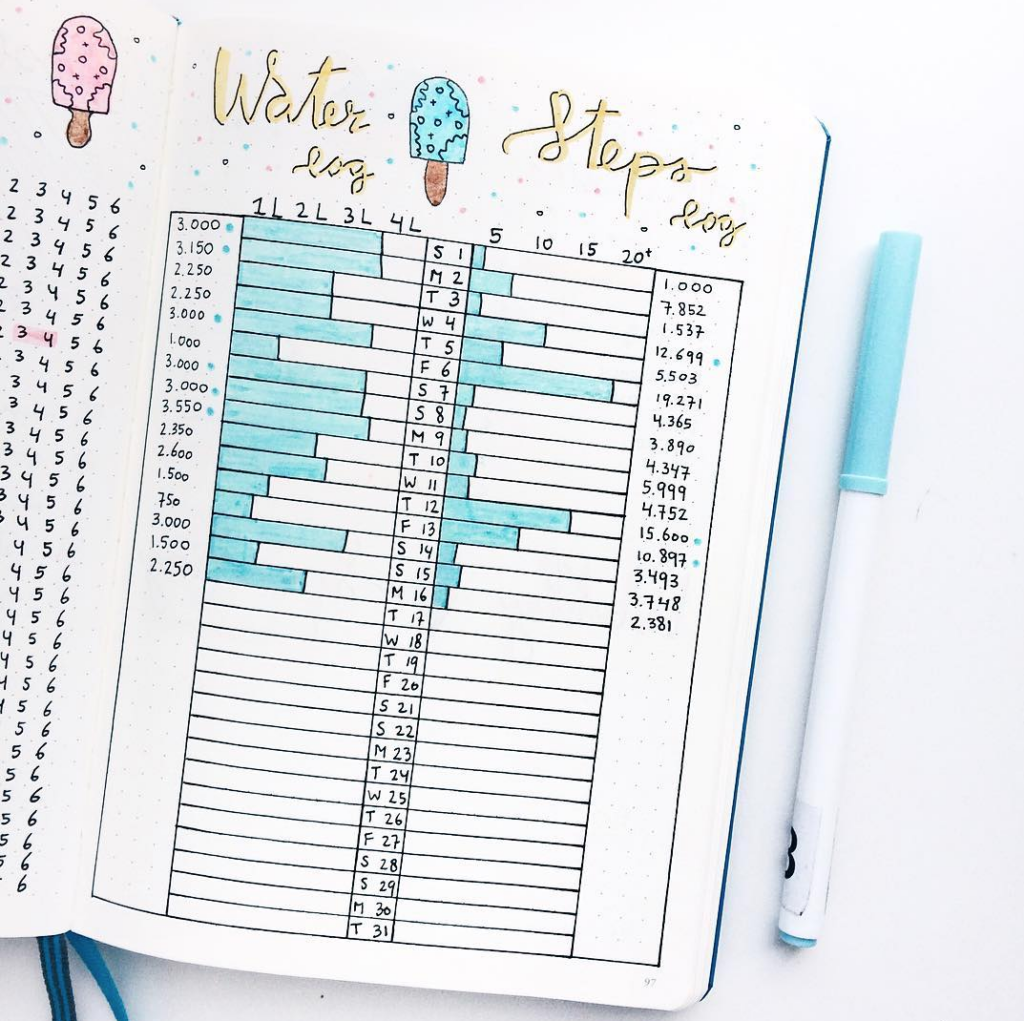 2 3 4 5 6
2 3 4 5 6
2 3 4 5 6
2 3 4 5 6
2 3 4 5 6
2 3 4 5 6
2 3 4 5 6
3 4 5 6
3 4 5 6
3 4 5 6
3 4 5 6
3 4 5 6
3 4 5 6
3 4 5 6
3 4 5 6
4 5 6
4 5 6
4 5 6
4 5 6
4 5 6
4 5 6
4 5 6
4 5 6
5 6
5 6
5 6
5 6
5 6
5 6
5 6
6
Water log
Steps log
1L 2L 3L 4L 5 10 15 20+
3.000 S 1 1.000
3.150 M 2 7.852
2.250 T 3 1.537
2.250 W 4 12.699
3.000 T 5 5.503
1.000 F 6 19.271
3.000 S 7 4.365
3.000 S 8 3.890
3.550 M 9 4.347
2.350 T 10 5.999
2.600 W 11 4.752
1.500 T 12 15.600
750 F 13 10.897
3.000 S 14 3.493
1.500 S 15 3.748
2.250 M 16 2.381
T 17
W 18
T 19
F 20
S 21
S 22
M 23
T 24
W 25
T 26
F 27
S 28
S 29
M 30
T 31
97